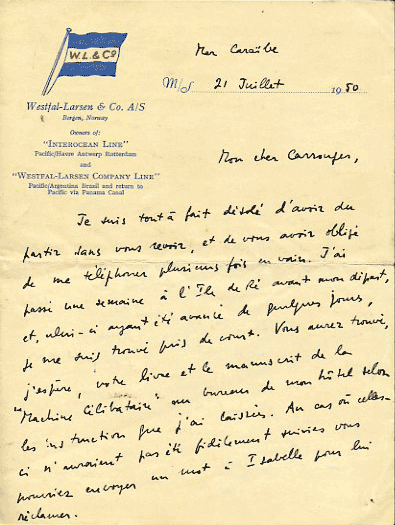 W.L.&Co
Westfal-Larsen & Co. A/S
Bergen, Norway
Owners of:
"INTEROCEAN LINE"
Pacific/Havre Antwerp Rotterdam
and
"WESTFAL-LARSEN COMPANY LINE"
Pacific/Argentina Brazil and return to
Pacific via Panama Canal
Mer Caraïbe
M/S 21 Juillet 1950
Mon cher Carrouges,
Je suis tout à fait désolé d'avoir du
partir sans vous revoir, et de vous avoir obligé
de me téléphoner plusieurs fois en vain. J'ai
passé une semaine à l'Ile de Ré avant mon départ,
et, celui-ci ayant été avancé de quelques jours,
je me suis trouvé pris de court. Vous aurez trouvé,
j'espère, votre livre et le manuscrit de la
"Machine Célibataire" au bureau de mon hôtel selon
les instruction que j'ai laissées. Au cas où celles-
ci n'auraient pas été fidèlement suivies vous
pourriez envoyer un mot à Isabelle pour lui
réclamer.